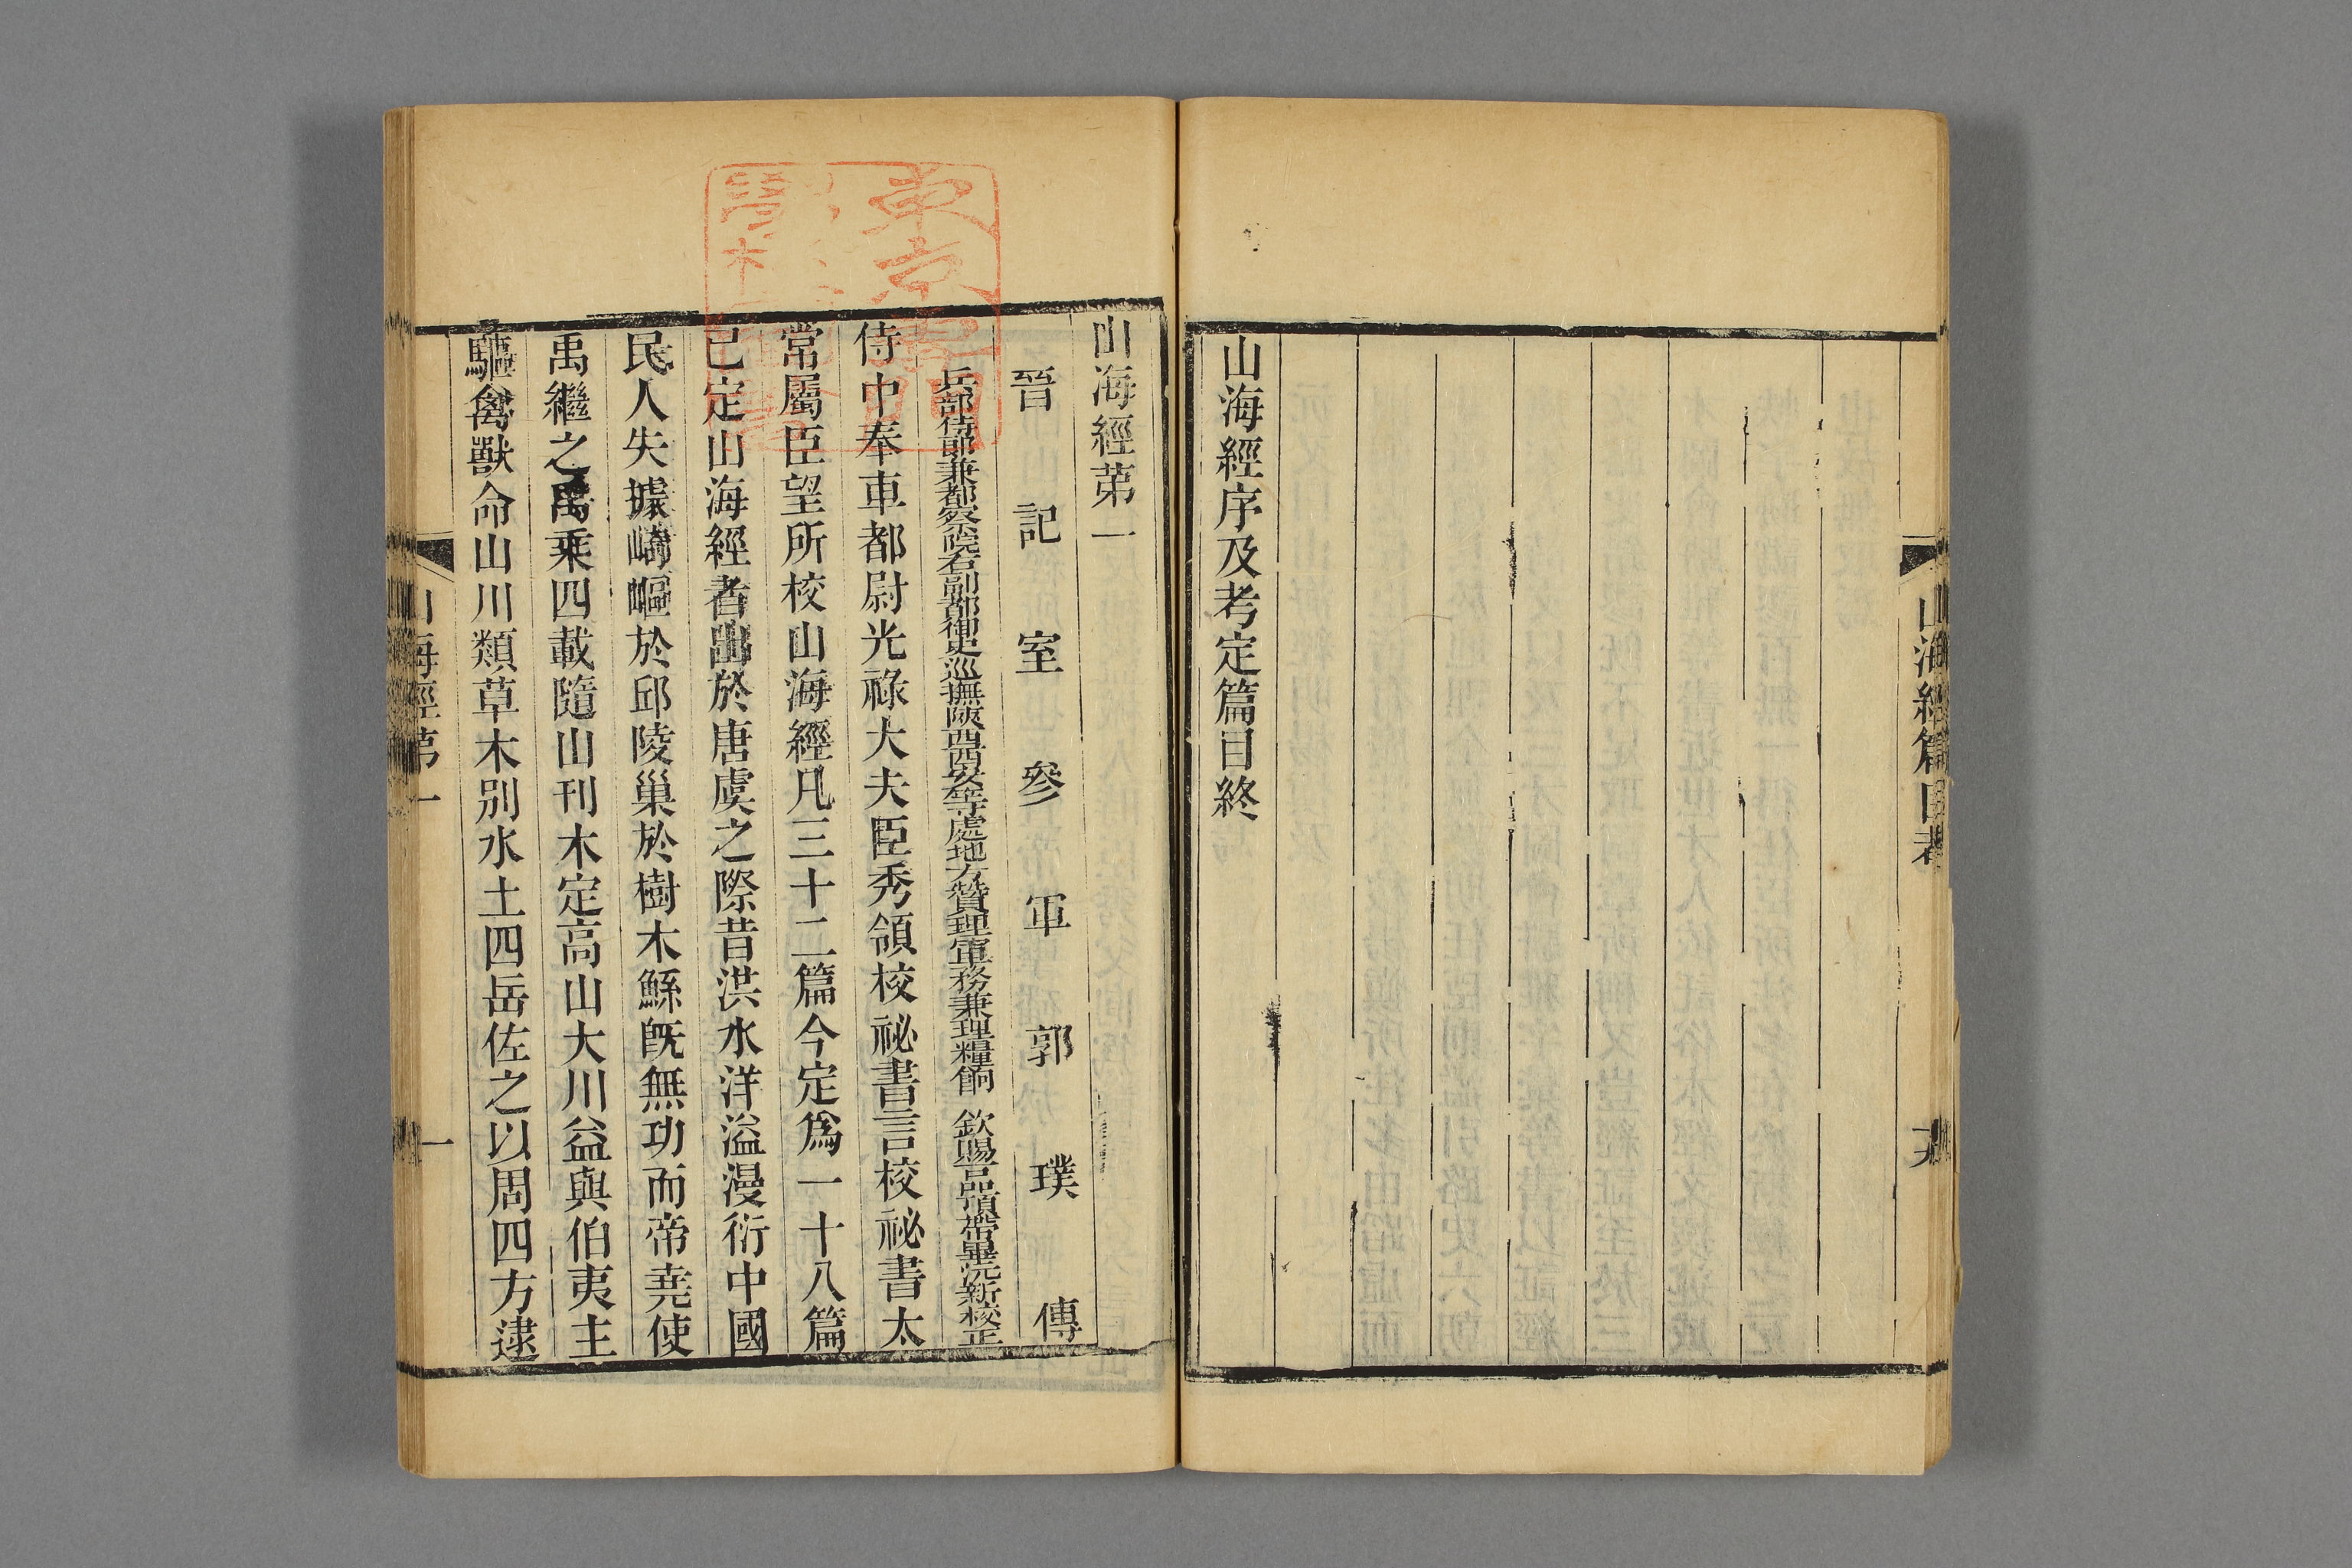 山海經篇目考
山海經序及考定篇目終
山海經第一
晉記室參軍郭璞傳
兵部侍郎兼都察院右副都御史巡撫陝西西安等處地方贊理軍務兼理糧餉 欽賜一品頂帶畢沅新校正
侍中奉車都尉光祿大夫臣秀領校祕書言校祕書太
常屬臣望所校山海經凡三十二篇今定爲一十八篇
已定山海經者出於唐虞之際昔洪水洋溢漫衍中國
民人失據崎嶇於邱陵巢於樹木鯀旣無功而帝堯使
禹繼之禹乘四載隨山刊木定高山大川益與伯夷主
驅禽獸命山川類草木別水土四岳佐之以周四方逮
山海經第一
一